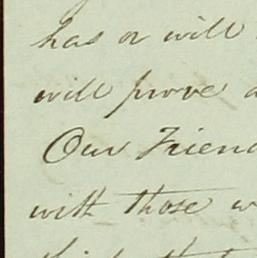 has or will
will prove
Our Friend
with those